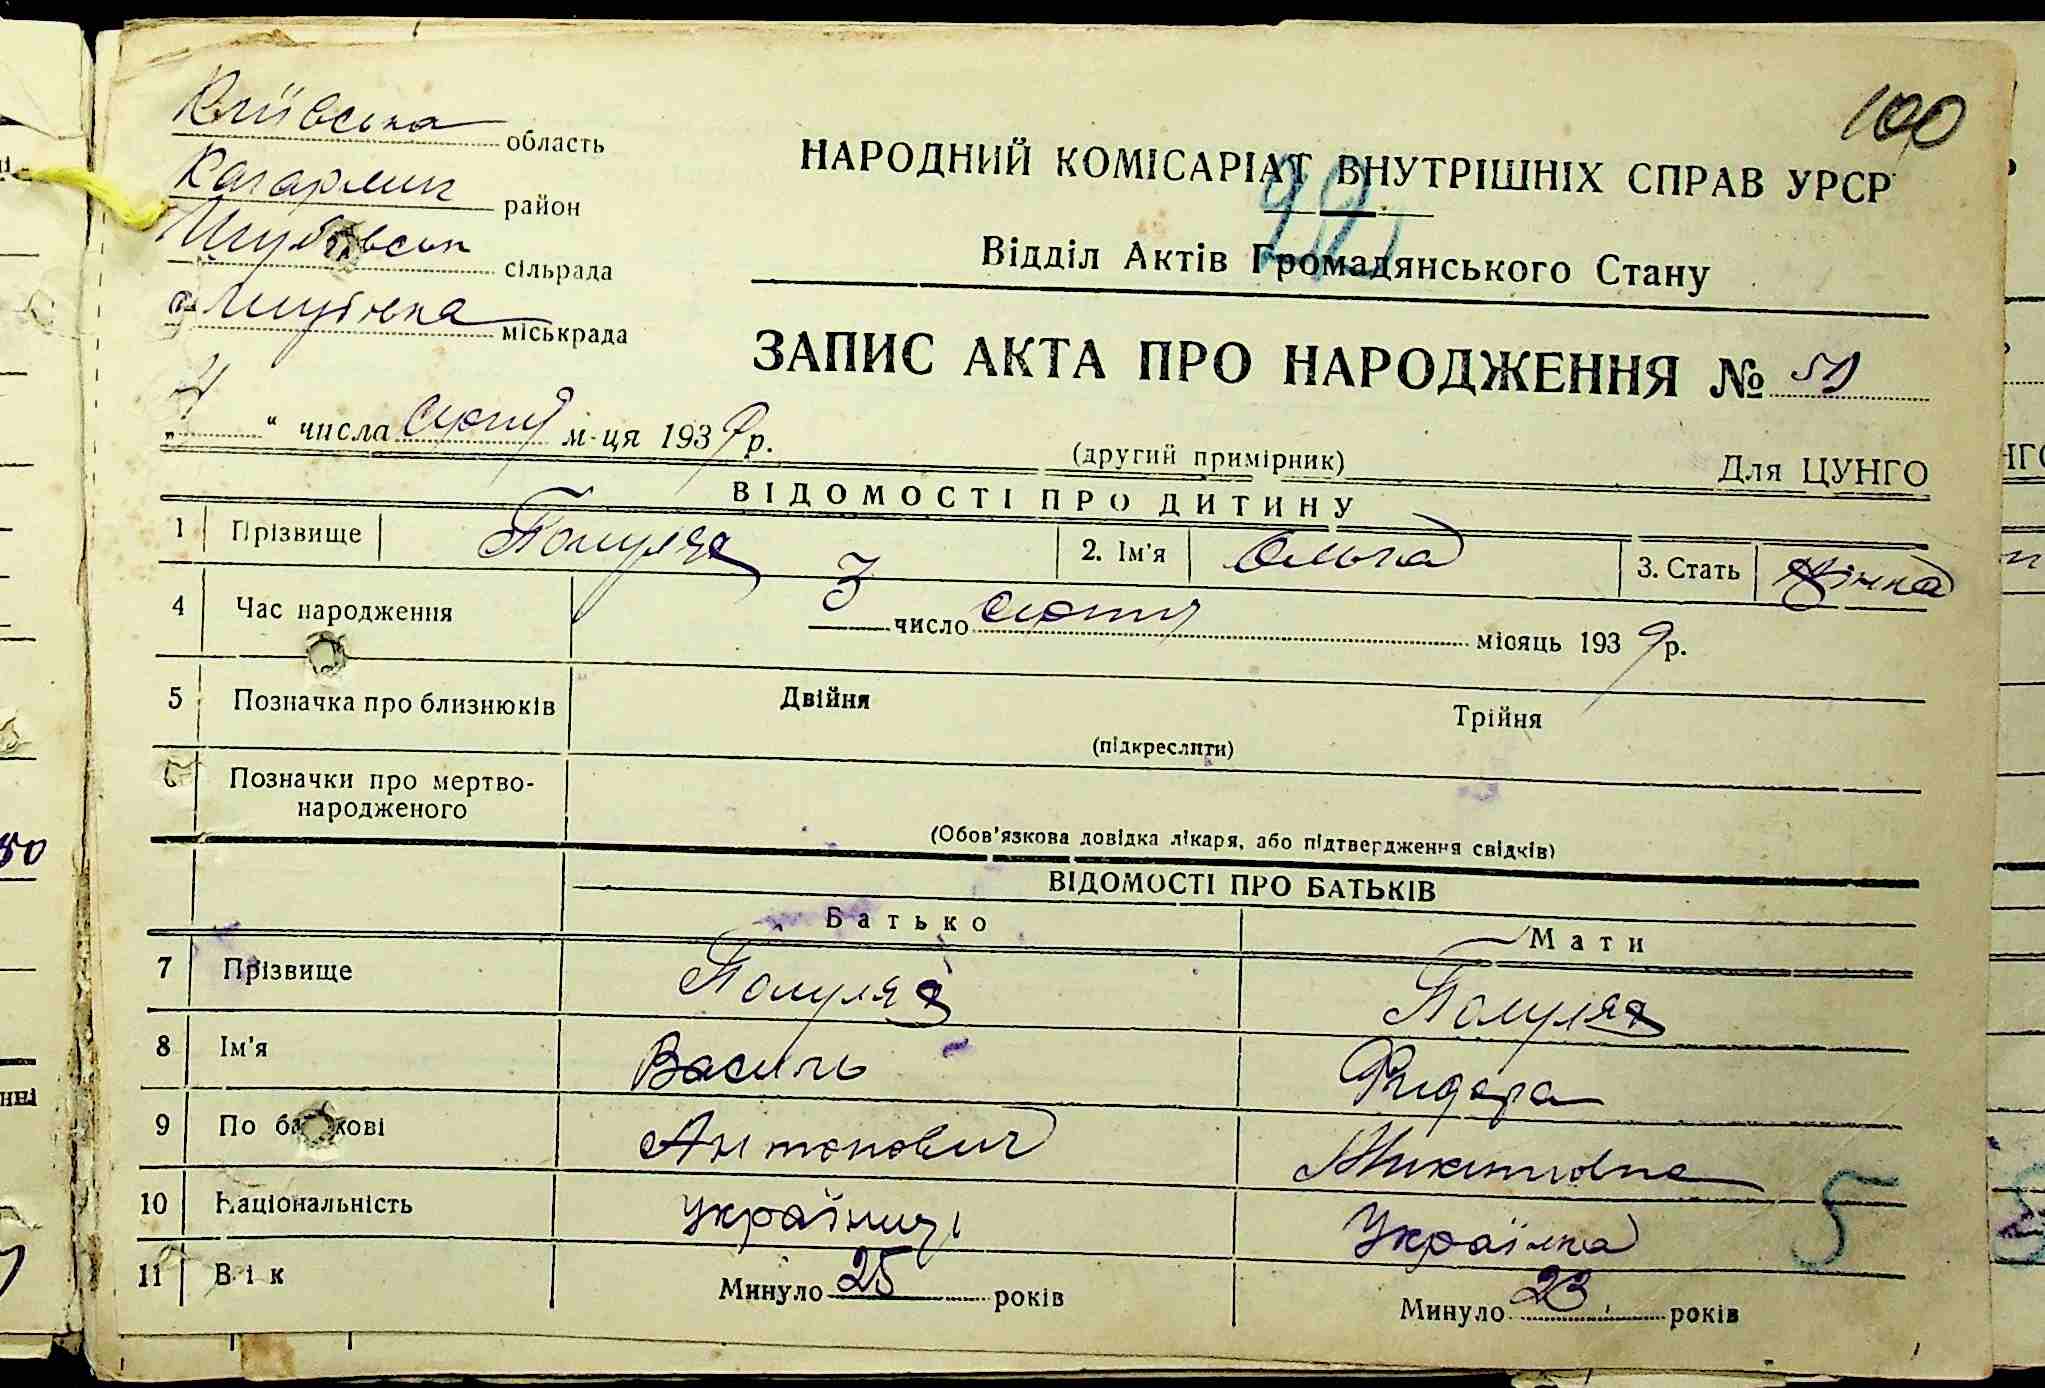 100
Київська область
Кагарлик район
сільрада
міськрада
НАРОДНИЙ КОМІСАРІАТ ВНУТРІШНІХ СПРАВ УРСР
Відділ Актів Громадянського Стану
ЗАПИС АКТА ПРО НАРОДЖЕННЯ №
„4“ числа м-ця 1939 р.
(другий примірник) Для ЦУНГО
ВІДОМОСТІ ПРО ДИТИНУ
1 Прізвище 2. Ім'я Ольга 3. Стать жінка
4 Час народження 3 число місяць 1939 р.
5 Позначка про близнюків Двійня Трійня
(підкреслити)
6 Позначки про мертво-
народженого
(Обов'язкова довідка лікаря, або підтвердження свідків)
ВІДОМОСТІ ПРО БАТЬКІВ
Батько Мати
7 Прізвище
8 Ім'я Василь
9 По батькові Антонович Микитовна
10 Національність Українка
11 Вік Минуло 25 років Минуло 23 років
5